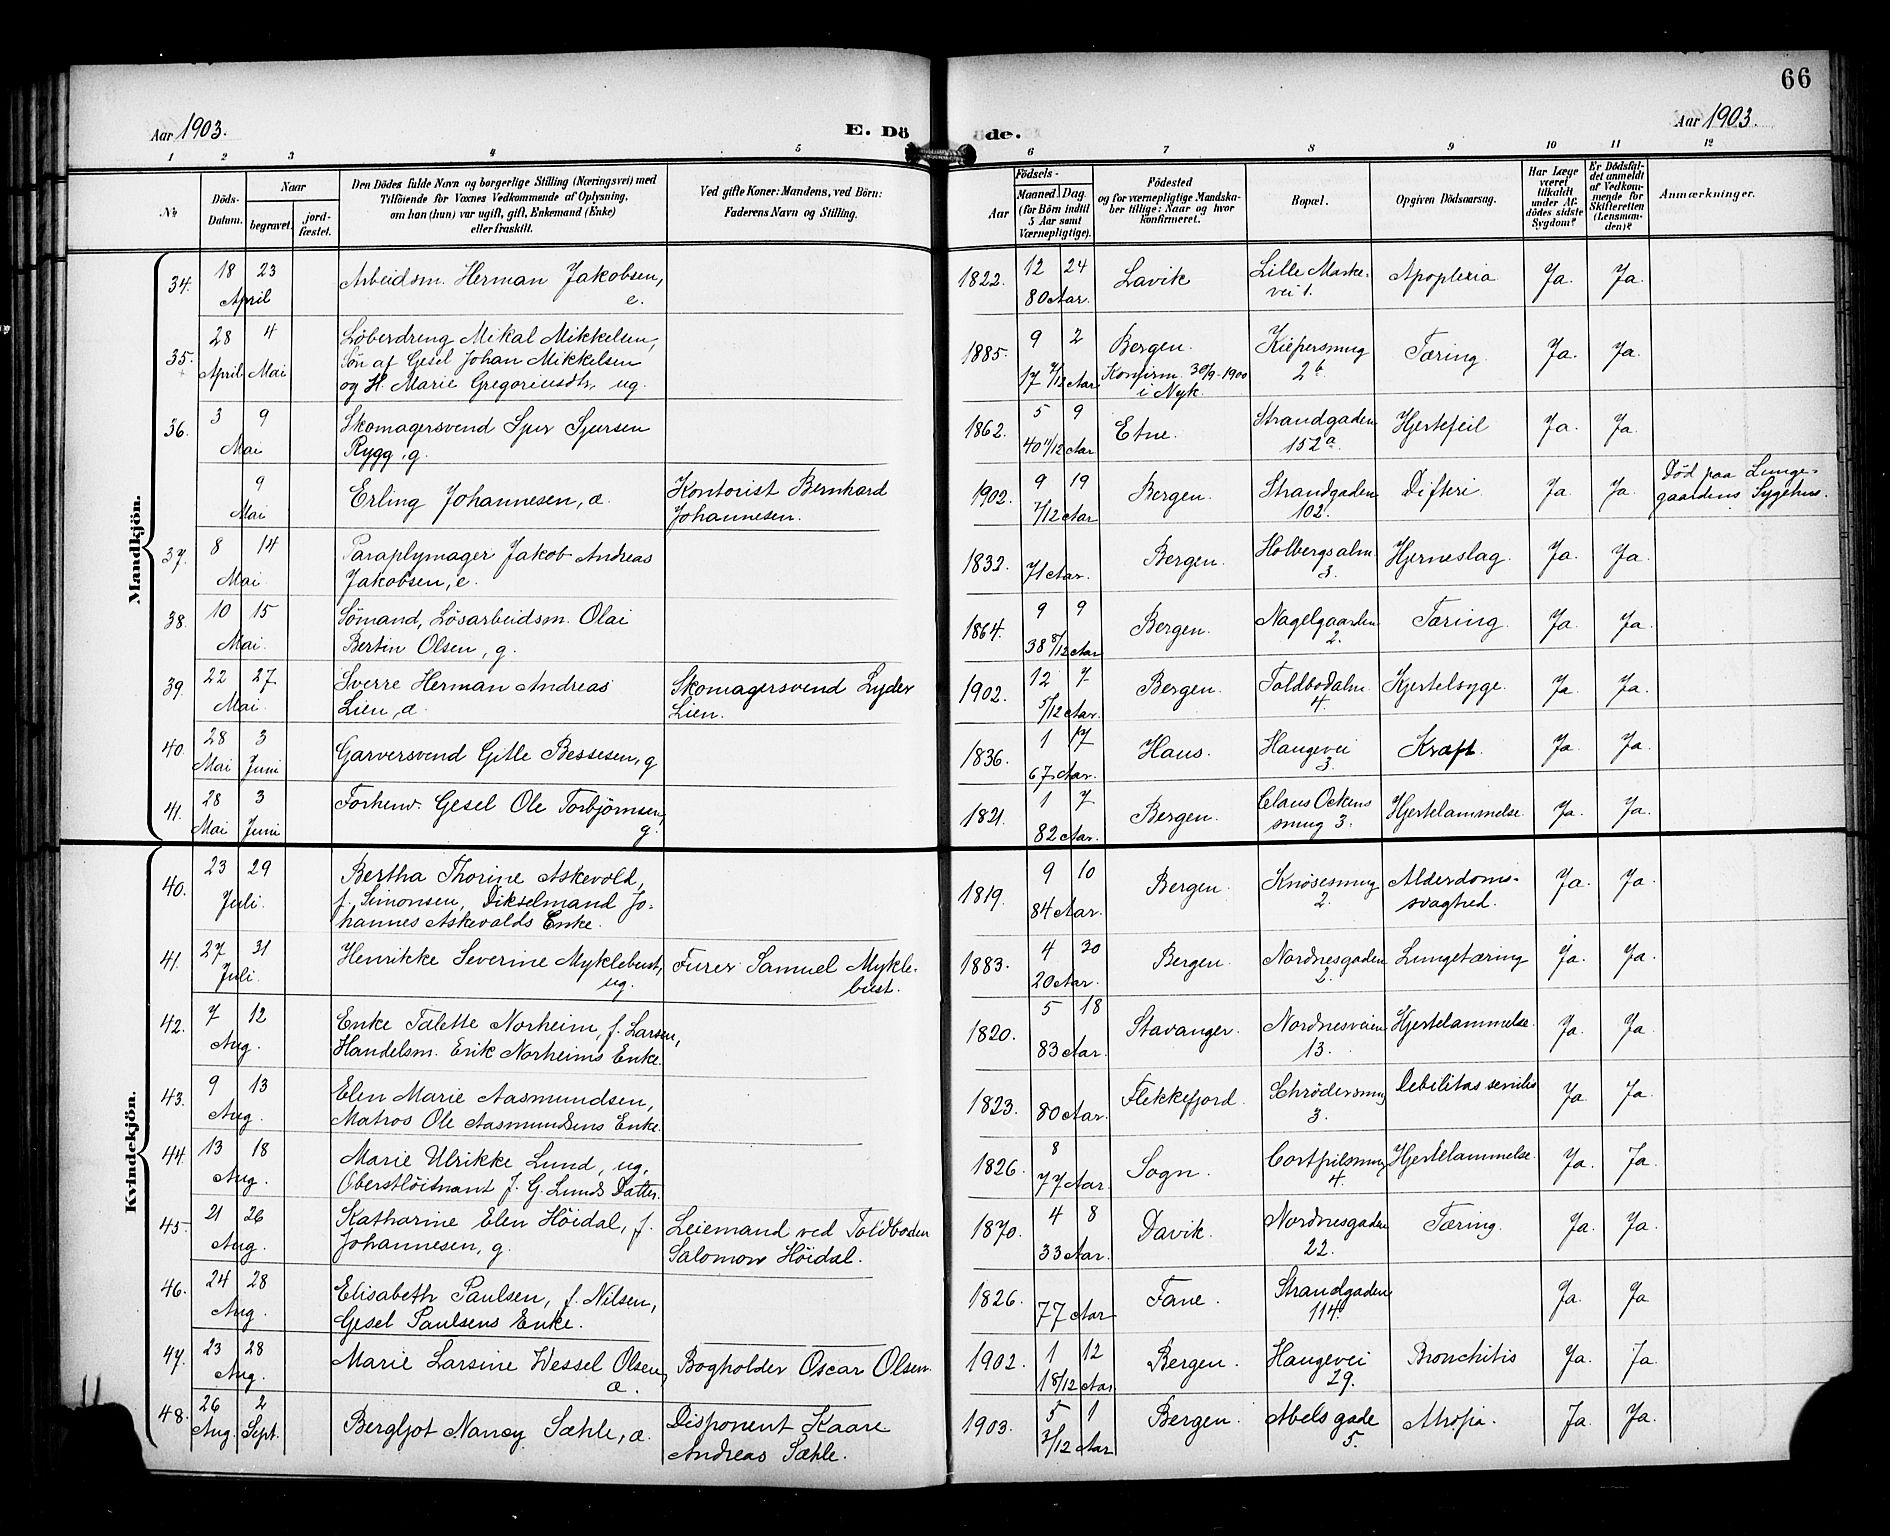 66
Aar 1903.
E. Dö de.
Aar 1903.
1 2 3 4 5 6 7 8 9 10 11 12
Nr.
Döds-Datum.
Naar
begravet.
jord-fæstet.
Den Dödes fulde Navn og borgerlige Stilling (Næringsvei) med
Tilföiende for Voxnes Vedkommende af Oplysning,
om han (hun) var ugift, gift, Enkemand (Enke)
eller fraskilt.
Ved gifte Koner: Mandens, ved Börn:
Faderens Navn og Stilling.
Födsels-
Aar
Maaned. Dag.
(for Börn indtil
5 Aar samt
Værnepligtige).
Födested
og for værnepligtige Mandska-
ber tillige: Naar og hvor
konfirmeret.
Bopæl.
Opgiven Dödsaarsag.
Har Læge
været
tilkaldt
under Af-
dödes sidste
Sygdom?
Er Dödsfal-
det anmeldt
af Vedkom-
mende for
Skifteretten
(Lensman-
den)?
Anmærkninger.
Mandkjön.
34. 18 23 April Arbeidsm. Herman Jakobsen, e. 1822. 12 24 80 Aar. Lavik Lille Markevei 1. Apoplexia Ja. Ja.
35. 28 April 4 Mai Løberdreng Mikal Mikkelsen,
Søn af Gesel Johan Mikkelsen
og H. Marie Gregoriusdtr, ug. 1885. 9 2 17 7/12 Aar Bergen. Konfirm. 30/9-1900 i Nyk. Kiepersmug 2b Tæring. Ja. Ja.
36. 3 9 Mai Skomagersvend Sjur Sjursen
Rygg, g. 1862. 5 9 40 11/12 Aar Etne. Strandgaden 152a Hjertefeil Ja. Ja.
9 Mai Erling Johannesen, æ. Kontorist Bernhard
Johannesen. 1902. 9 19 7/12 Aar Bergen. Strandgaden 102. Difteri Ja. Ja. Død paa Lunge-
gaardens Sygehus.
37. 8 14 Mai. Paraplymager Jakob Andreas
Jakobsen, e. 1832. 71 Aar. Bergen. Holbergsalm. 3. Hjerneslag. Ja. Ja.
38. 10 15 Mai. Sømand, Løsarbeidsm. Olai
Bertin Olsen, g. 1864. 9 9 38 8/12 Aar Bergen. Nagelgaarden 2. Tæring. Ja. Ja.
39. 22 27 Mai. Sverre Herman Andreas
Lien, æ. Skomagersvend Lyder
Lien. 1902. 12 7 5/12 Aar. Bergen. Toldbodalm. 4. Kjertelsyge. Ja. Ja.
40. 28 Mai 3 Juni Garversvend Gitle Bessesen, g 1836. 1 17 67 Aar. Haus. Haugevei 3. Kræft. Ja. Ja.
41. 28 Mai 3 Juni Forhenv. Gesel Ole Torbjørnsen, g. 1821. 1 7 82 Aar. Bergen. Claus Ockens
smug 3. Hjertelammelse. Ja. Ja.
Kvindekjön.
40. 23 29 Juli. Bertha Thorine Askevold,
f. Simonsen, Dikselmand Jo-
hannes Askevolds Enke. 1819. 9 10 84 Aar. Bergen. Knøsesmug 2. Alderdoms-
svaghed. Ja. Ja.
41. 27 31 Juli. Henrikke Severine Myklebust, ug. Furer Samuel Mykle-
bust. 1883. 4 30 20 Aar. Bergen. Nordnesgaden 2. Lungetæring Ja. Ja.
42. 7 12 Aug. Enke Talette Norheim, f. Larsen,
Handelsm. Erik Norheims Enke. 1820. 5 18 83 Aar. Stavanger. Nordnesveien 13. Hjertelammelse. Ja. Ja.
43. 9 13 Aug. Elen Marie Aasmundsen,
Matros Ole Aasmundsens Enke. 1823. 80 Aar. Flekkefjord. Schrødersmug 3. Debilitas senilis Ja. Ja.
44. 13 18 Aug. Marie Ulrikke Lund, ug.
Oberstløitnant J. G. Lunds Datter. 1826. 8 77 Aar. Sogn. Cortpilsmug 4. Hjertelammelse. Ja. Ja.
45. 21 26 Aug. Katharine Elen Høidal, f.
Johannesen, g. Leiemand ved Toldboden
Salomon Høidal. 1870. 4 8 33 Aar. Davik. Nordnesgaden 22. Tæring. Ja. Ja.
46. 24 28 Aug. Elisabeth Paulsen, f. Nilsen,
Gesel Paulsens Enke. 1826. 77 Aar Fane. Strandgaden 114. Ja. Ja
47. 23 28 Aug. Marie Larsine Wessel Olsen, æ. Bogholder Oscar Olsen. 1902. 1 12 1 8/12 Aar. Bergen. Haugevei 29. Bronchitis Ja. Ja.
48. 26 Aug. 2 Sept. Bergljot Nancy Sæhle, æ. Disponent Kaare
Andreas Sæhle. 1903. 5 1 3/12 Aar Bergen. Abels gade 5. Atrofia. Ja. Ja.